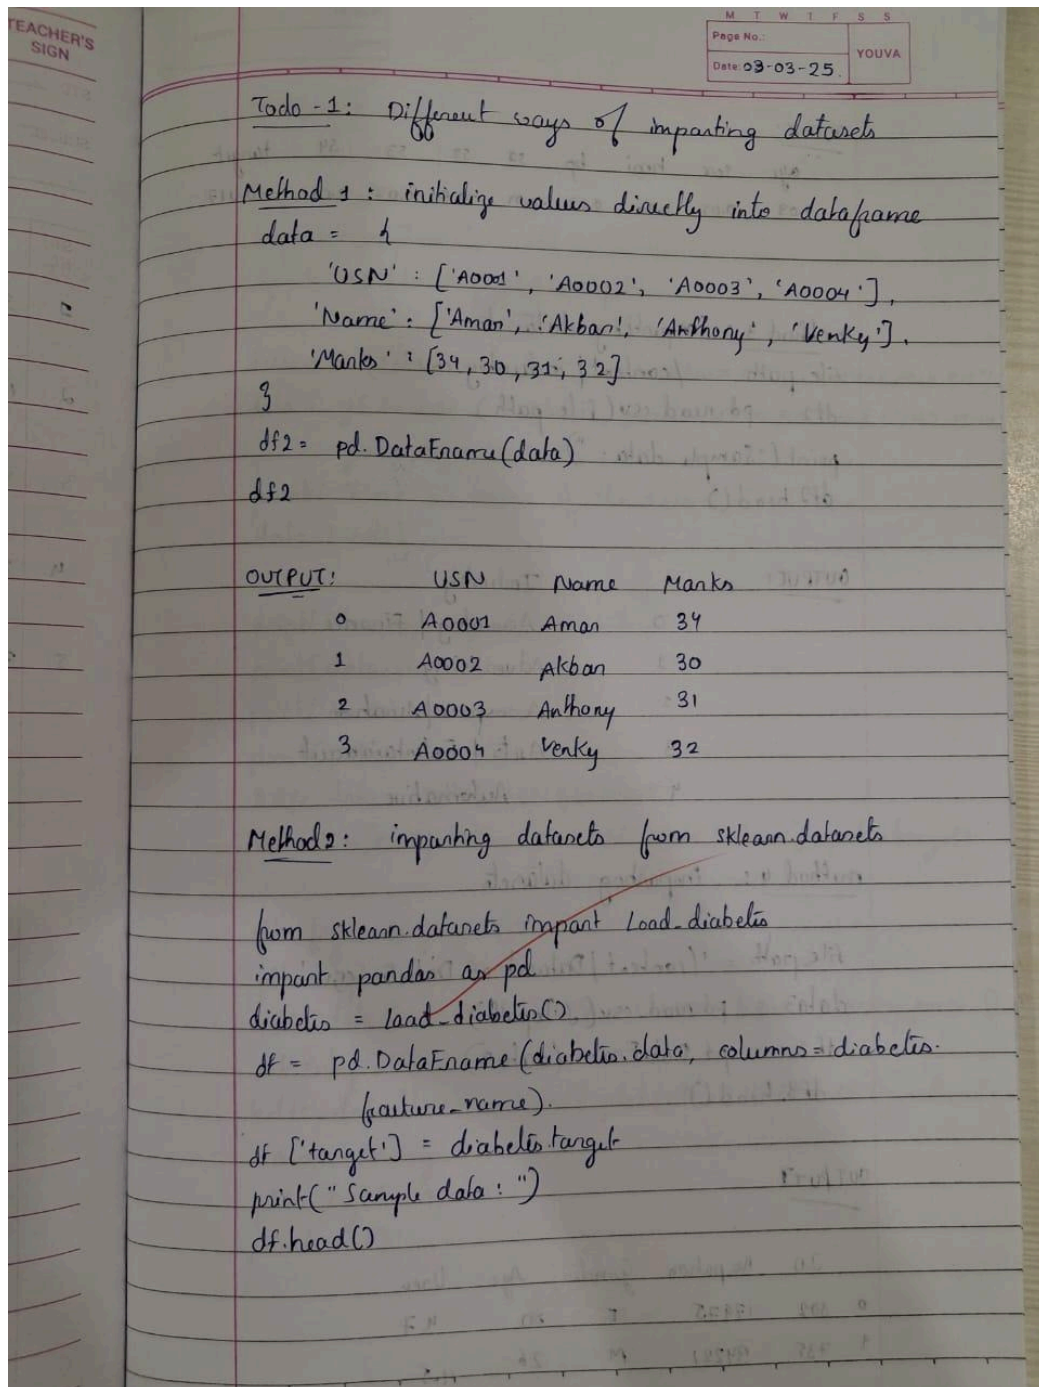 TEACHER'S
SIGN
M T W T F S S
Page No.:
YOUVA
Date: 03-03-25.
Todo-1: Different ways of importing datasets
Method 1: initialize values directly into dataframe
data = {
'USN' : ['A0001', 'A0002', 'A0003', 'A0004'],
'Name' : ['Aman', 'Akbar', 'Anthony', 'Venky'],
'Marks' : [34, 30, 31, 32]
}
df2 = pd.DataFrame(data)
df2
OUTPUT: USN Name Marks
0 A0001 Aman 34
1 A0002 Akbar 30
2 A0003 Anthony 31
3 A0004 Venky 32
Method 2: importing datasets from sklearn.datasets
from sklearn.datasets import Load_diabetis
import pandas as pd
diabetis = load_diabetis()
df = pd.DataFrame(diabetis.data, columns = diabetis.
feature_name).
df ['target'] = diabetis.target
print("Sample data : ")
df.head()